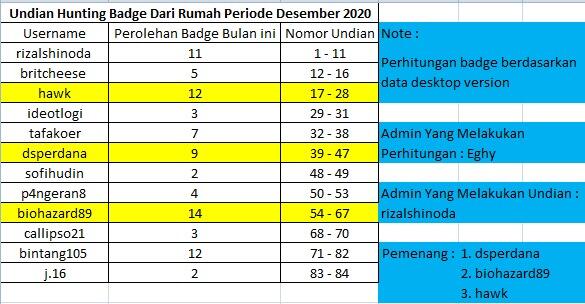 Undian Hunting Badge Dari Rumah Periode Desember 2020
Username Perolehan Badge Bulan ini Nomor Undian
rizalshinoda 11 1 - 11
britcheese 5 12 - 16
hawk 12 17 - 28
ideotlogi 3 29 - 31
tafakoer 7 32 - 38
dsperdana 9 39 - 47
sofihudin 2 48 - 49
p4ngeran8 4 50 - 53
biohazard89 14 54 - 67
callipso21 3 68 - 70
bintang105 12 71 - 82
j.16 2 83 - 84
Note :
Perhitungan badge berdasarkan
data desktop version
Admin Yang Melakukan
Perhitungan : Eghy
Admin Yang Melakukan Undian :
rizalshinoda
Pemenang : 1. dsperdana
2. biohazard89
3. hawk